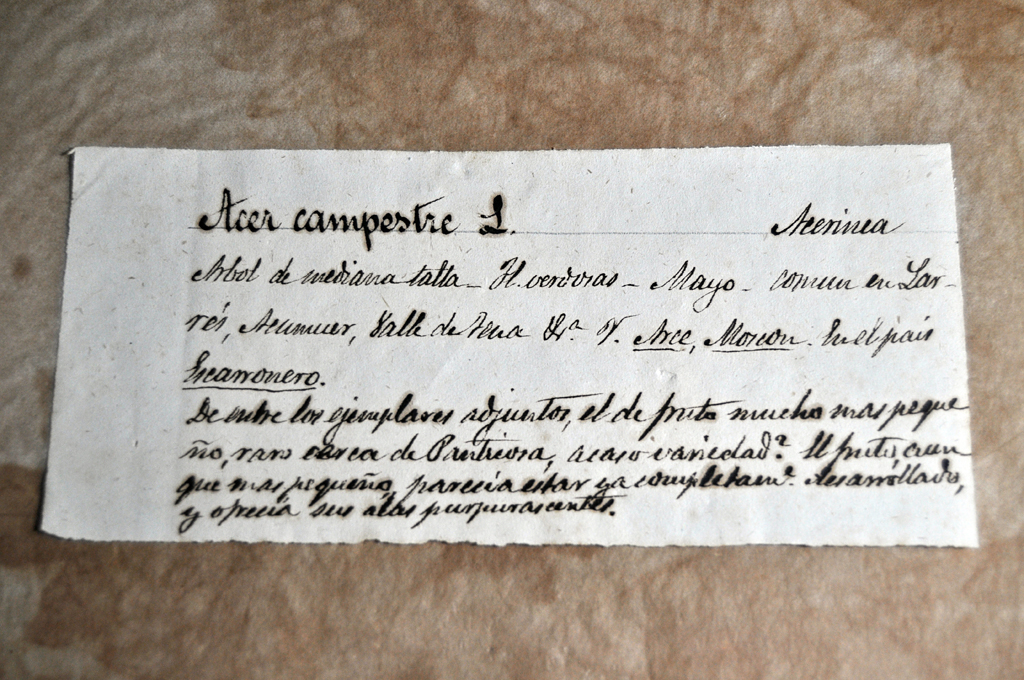 Acer campestre L. Acerinea
Arbol de mediana talla - Fl. verdosas - Mayo - comun en Lar-
rés, Acumuer, Valle de Tena &.ª V. Arce, Moscon. En el pais
Escarronero.
De entre los ejemplares adjuntos, el de fruto mucho mas peque
ño, raro cerca de Panticosa, acaso variedad.ª El fruto aun
que mas pequeño, parecia estar ya completam.e desarrollado,
y ofrecia sus alas purpurascentes.